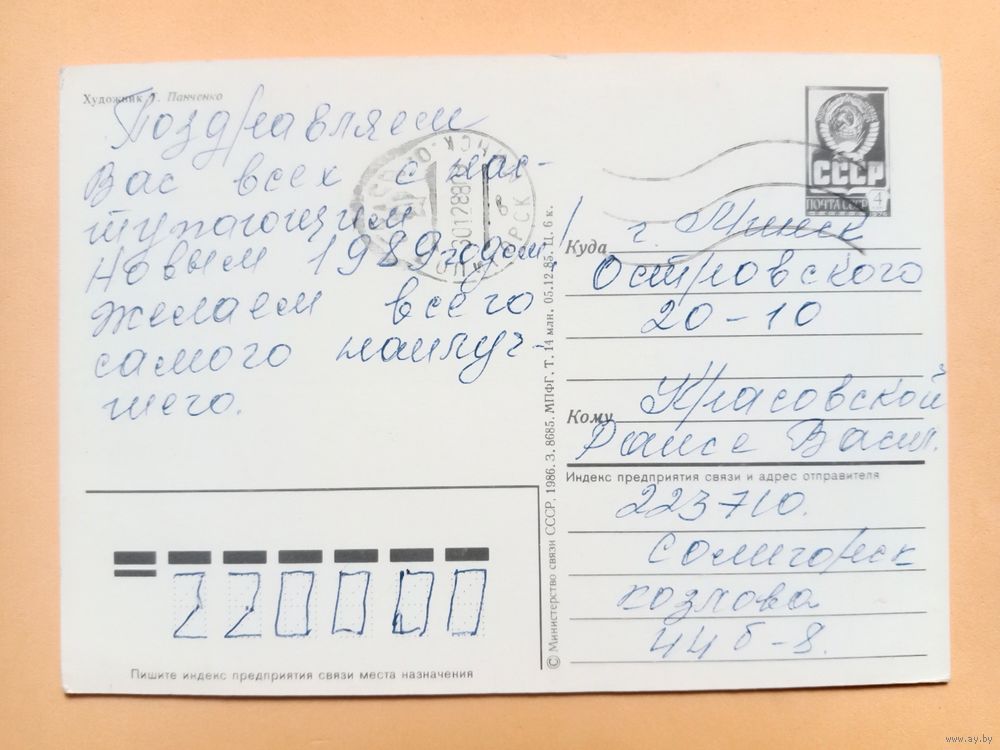 Художник Панченко
Поздравляем
Вас всех с нас-
тупающим
Новым 1989 годом!
Желаем всего
самого наилуч-
шего.
СССР
ПОЧТА СССР 4
1976
Куда
г. Минск
Островского
20-10
Кому
Красовской
Раисе Васил.
Индекс предприятия связи и адрес отправителя
223710.
Солигорск
Козлова
44б-8.
220000
Пишите индекс предприятия связи места назначения
© Министерство связи СССР, 1986. З. 8685. МПФГ. Т. 14 млн. 05.12.85. Ц. 6 к.
www.ay.by